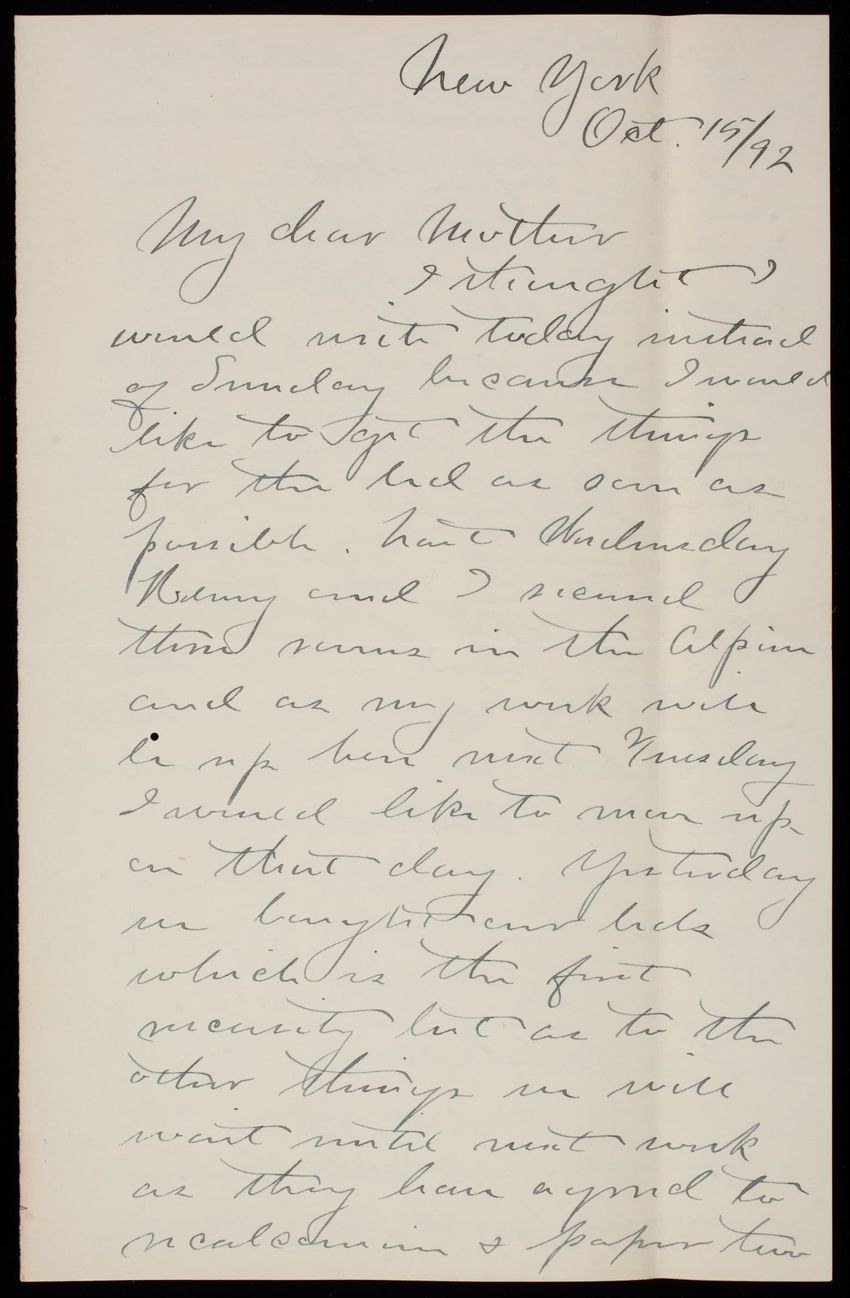 New York
Oct. 15/92
My dear Mother
I thought I
would write today instead
of Sunday because I would
like to get the things
for the bed as soon as
possible. Last Wednesday
Henry and I secured
three rooms in the Alpine
and as my work will
be up here next Tuesday
I would like to move up
on that day. Yesterday
we bought our beds
which is the first
necessity but as to the
other things we will
wait until next week
as they have agreed to
recalcimine & paper two